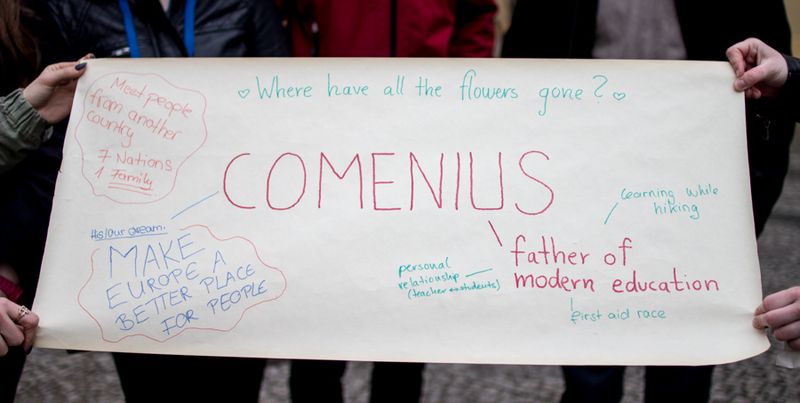 ♡ Where have all the flowers gone? ♡
Meet people
from another
country
7 Nations
1 Family
COMENIUS
His/Our dream:
MAKE
EUROPE A
BETTER PLACE
FOR PEOPLE
learning while
hiking
father of
modern education
personal
relationship
(teacher ↔ students)
first aid race